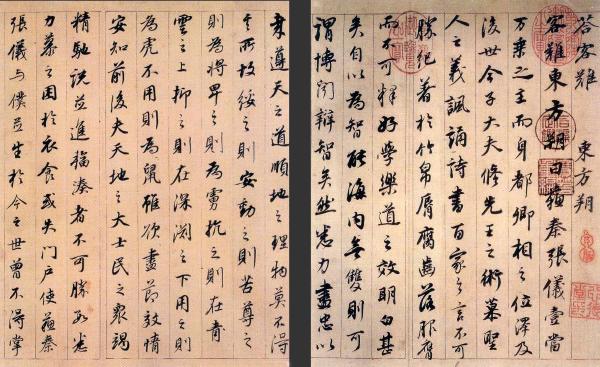 答客難 東方朔
客難東方朔曰蘇秦張儀壹當
万乘之主而身都卿相之位澤及
後世今子大夫修先王之術慕聖
人之義諷誦詩書百家之言不可
勝紀著於竹帛脣腐齒落服膺
而不可釋好學樂道之效明白甚
矣自以為智能海内無雙則可
謂博聞辯智矣然悉力盡忠以
遵天之道順地之理物莫不得
其所故綏之則安動之則苦尊之
則為將卑之則為虜抗之則在青
雲之上抑之則在深淵之下用之則
為虎不用則為鼠雖欲盡節效情
安知前後夫天地之大士民之衆竭
精馳説並進輻湊者不可勝數悉
力慕之困於衣食或失門戶使蘇秦
張儀與僕並生於今之世曾不得掌